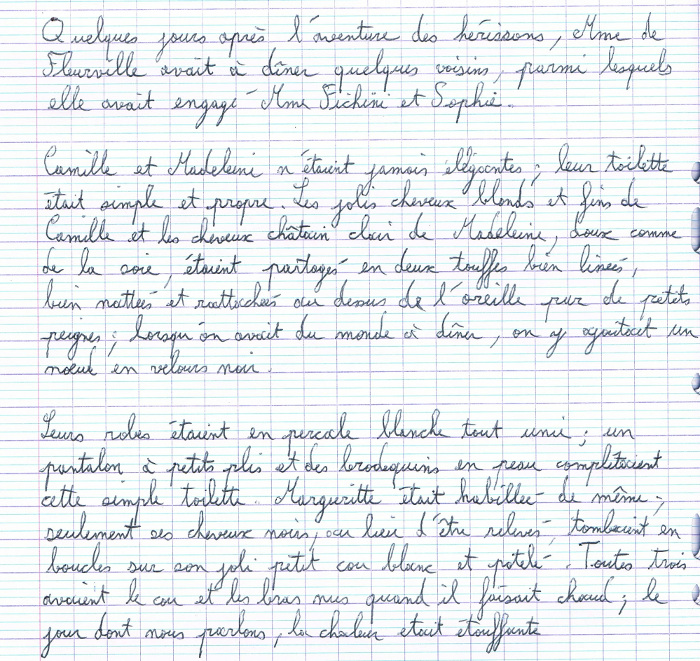 Quelques jours après l'aventure des hérissons, Mme de
Fleurville avait à dîner quelques voisins, parmi lesquels
elle avait engagé Mme Fichini et Sophie.
Camille et Madeleine n'étaient jamais élégantes ; leur toilette
était simple et propre. Les jolis cheveux blonds et fins de
Camille et les cheveux châtain clair de Madeleine, doux comme
de la soie, étaient partagés en deux touffes bien lissées,
bien nattées et rattachées au dessus de l'oreille par de petits
peignes ; lorsqu'on avait du monde à dîner, on y ajoutait un
noeud en velours noir.
Leurs robes étaient en percale blanche tout unie ; un
pantalon à petits plis et des brodequins en peau complétaient
cette simple toilette. Margueritte était habillée de même ;
seulement ses cheveux noirs, au lieu d'être relevés, tombaient en
boucles sur son joli petit cou blanc et potelé. Toutes trois
avaient le cou et les bras nus quand il faisait chaud ; le
jour dont nous parlons, la chaleur était étouffante